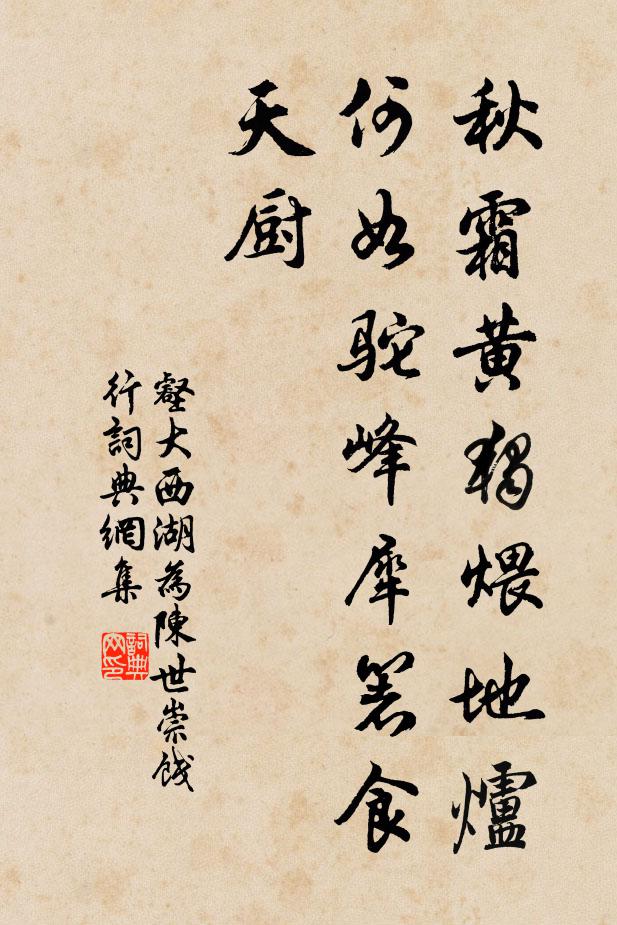 秋霜黄独煨地爐
何如駝峰犀箸食
天厨
壑大西湖為陳世崇餞
行詞典網集
詞典
网印